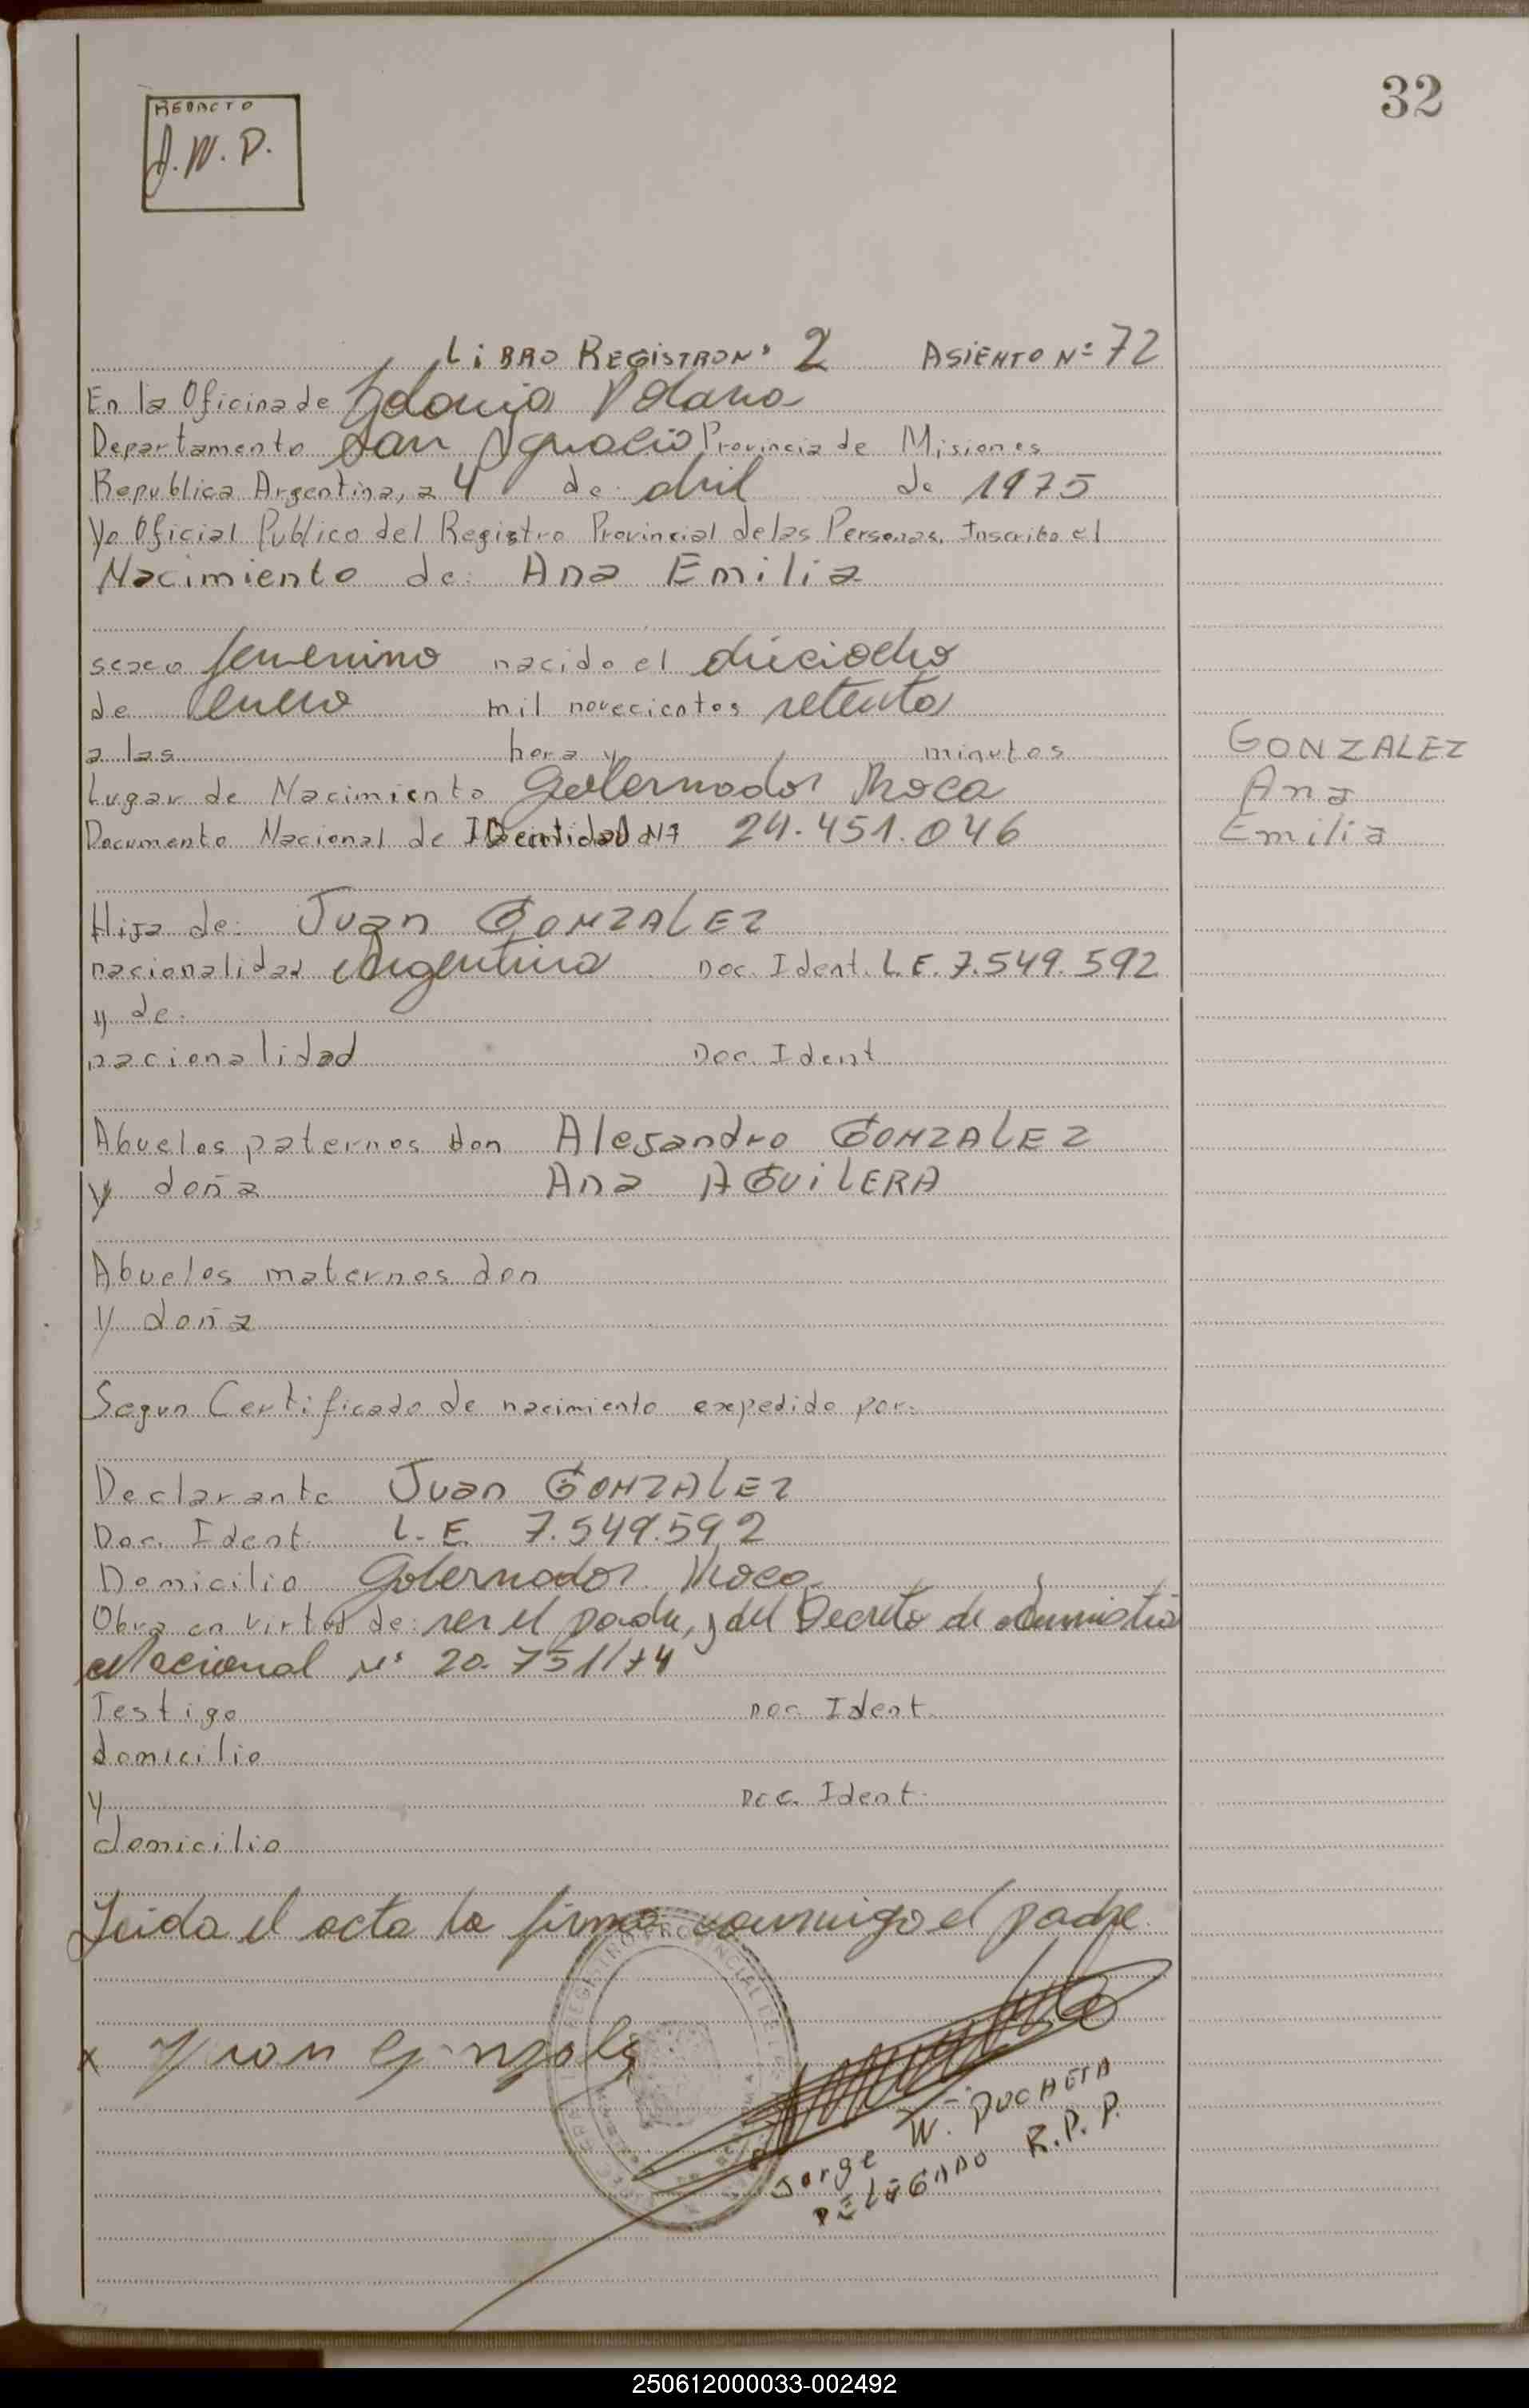 32
REDACTO
J.W.P.
LIBRO REGISTRO Nº 2 ASIENTO Nº 72
En la Oficina de Colonia Polana
Departamento San Ignacio Provincia de Misiones
Republica Argentina, a 4 de abril de 1975
Yo Oficial Publico del Registro Provincial de las Personas, Inscribo el
Nacimiento de: Ana Emilia
sexo femenino nacido el dieciocho
de enero mil novecientos setenta
a las hora y minutos
GONZALEZ
Lugar de Nacimiento Gobernador Roca
Ana
Documento Nacional de IDentidaD Nº 24.451.046
Emilia
Hija de: Juan GONZALEZ
nacionalidad Argentina Doc. Ident. L.E. 7.549.592
y de:
nacionalidad Doc. Ident
Abuelos paternos don Alejandro GONZALEZ
y doña Ana AGUILERA
Abuelos maternos don
Y doña
Segun Certificado de nacimiento expedido por:
Declarante Juan GONZALEZ
Doc. Ident. L.E. 7.549.592
Domicilio Gobernador Roca
Obra en virtud de: ser el padre, y del Decreto de Amnistia
Nacional Nº 20.751/74
Testigo Doc. Ident.
domicilio
y Doc. Ident.
domicilio
Leida el acta la firma conmigo el padre.
REGISTRO PROVINCIAL DE LAS
x Juan
Jorge W. PUCHETA
DELEGADO R.P.P.
250612000033-002492